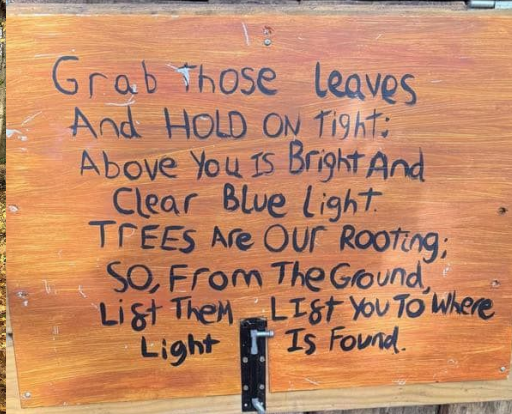 Grab Those leaves
And HOLD ON Tight;
Above You Is Bright And
Clear Blue Light.
TREES Are OUr Rooting;
SO, From The Ground,
List Them LISt You To Where
Light Is Found.